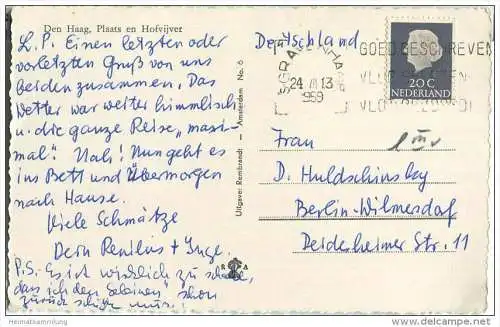 Den Haag, Plaats en Hofvijver
L.P. Einen letzten oder
vorletzten Gruß von uns
beiden zusammen. Das
Wetter war weiter himmlisch
u. die ganze Reise „maxi-
mal“! Nah! Nun geht es
ins Bett und Übermorgen
nach Hause.
Viele Schmätze
Dein + Inge.
P.S. Es ist wirklich zu schade,
dass ich den schon
zurück muss!
Uitgave: Rembrandt - Amsterdam No. 6
R A
Deutschland
'SGRAVENHAGE
24 VII 13
1959
GOED GESCHREVEN
20C
NEDERLAND
Frau
D. Huldschinsky
Berlin-Wilmersdorf
Deidesheimer Str. 11
Heimatsammlung
delcampe.net